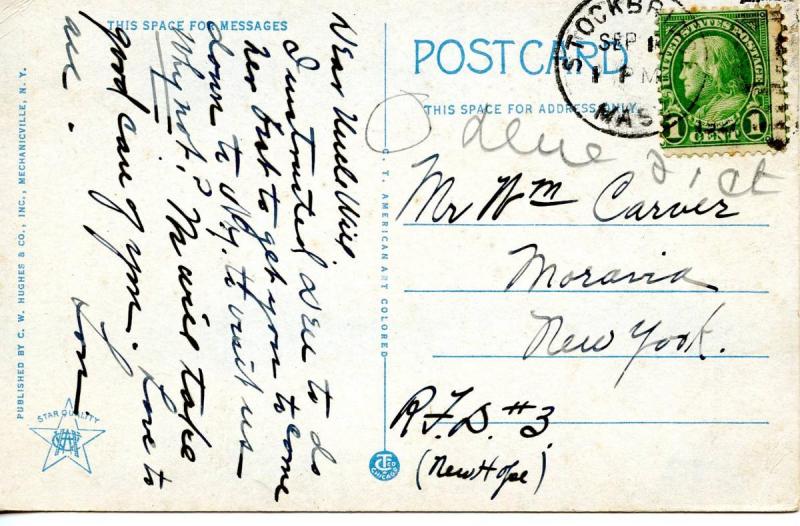 THIS SPACE FOR MESSAGES
Dear Uncle Will,
I instructed Dell to do
her best to get you to come
down to N.Y. to visit us—
Why not? We will take
good care of you. Love to
all.
Lon.
PUBLISHED BY C. W. HUGHES & CO., INC., MECHANICVILLE, N. Y.
STAR QUALITY
POSTCARD
THIS SPACE FOR ADDRESS ONLY
C. T. AMERICAN ART COLORED
CHICAGO
SEP
MASS
UNITED STATES POSTAGE
1 CENT 1
Mr Wm Carver
Moravia
New York.
R.F.D. #3
(New Hope)